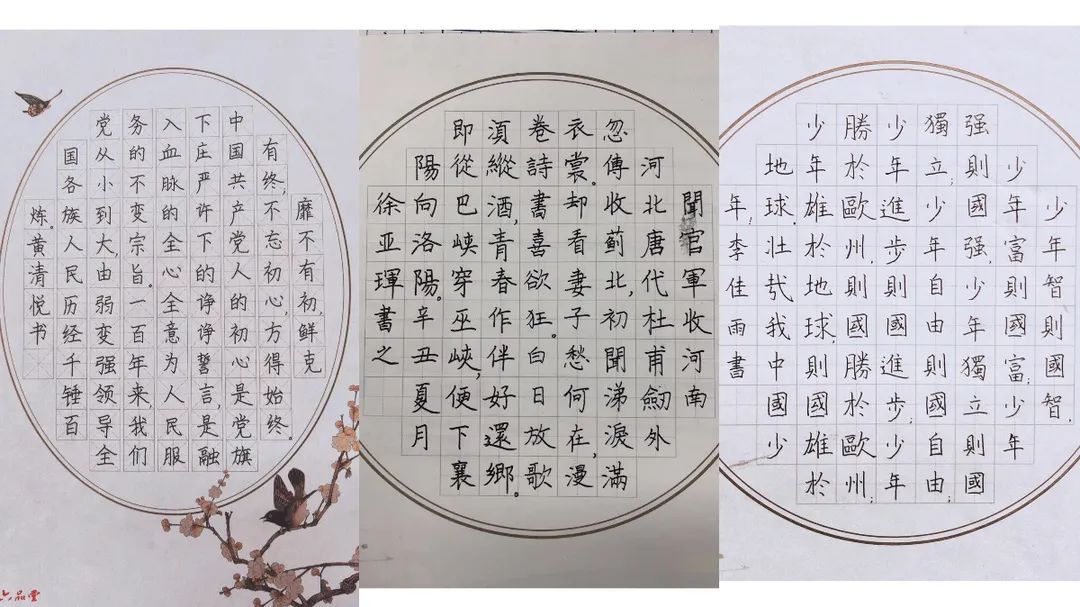 靡不有初,鲜克
有终,不忘初心,方得始终。
中国共产党人的初心是党旗
下庄严许下的诤诤誓言,是融
入血脉的全心全意为人民服
务的不变宗旨。一百年来我们
党从小到大,由弱变强领导全
国各族人民历经千锤百
炼。黄清悦书
六品堂
聞官軍收河南
河北唐代杜甫劒外
忽傳收蓟北,初聞涕淚滿
衣裳。却看妻子愁何在,漫
卷詩書喜欲狂。白日放歌
湏縱酒,青春作伴好還鄉。
即從巴峡穿巫峽,便下襄
陽向洛陽。辛丑夏月
徐亚琿書之
少年智則國智,
少年富則國富;少年
强則國强,少年獨立則國
獨立;少年自由則國自由;
少年進步則國進步;少年
勝於歐州,則國勝於歐州;
少年雄於地球,則國雄於
地球.壮哉我中國少
年,李佳雨書